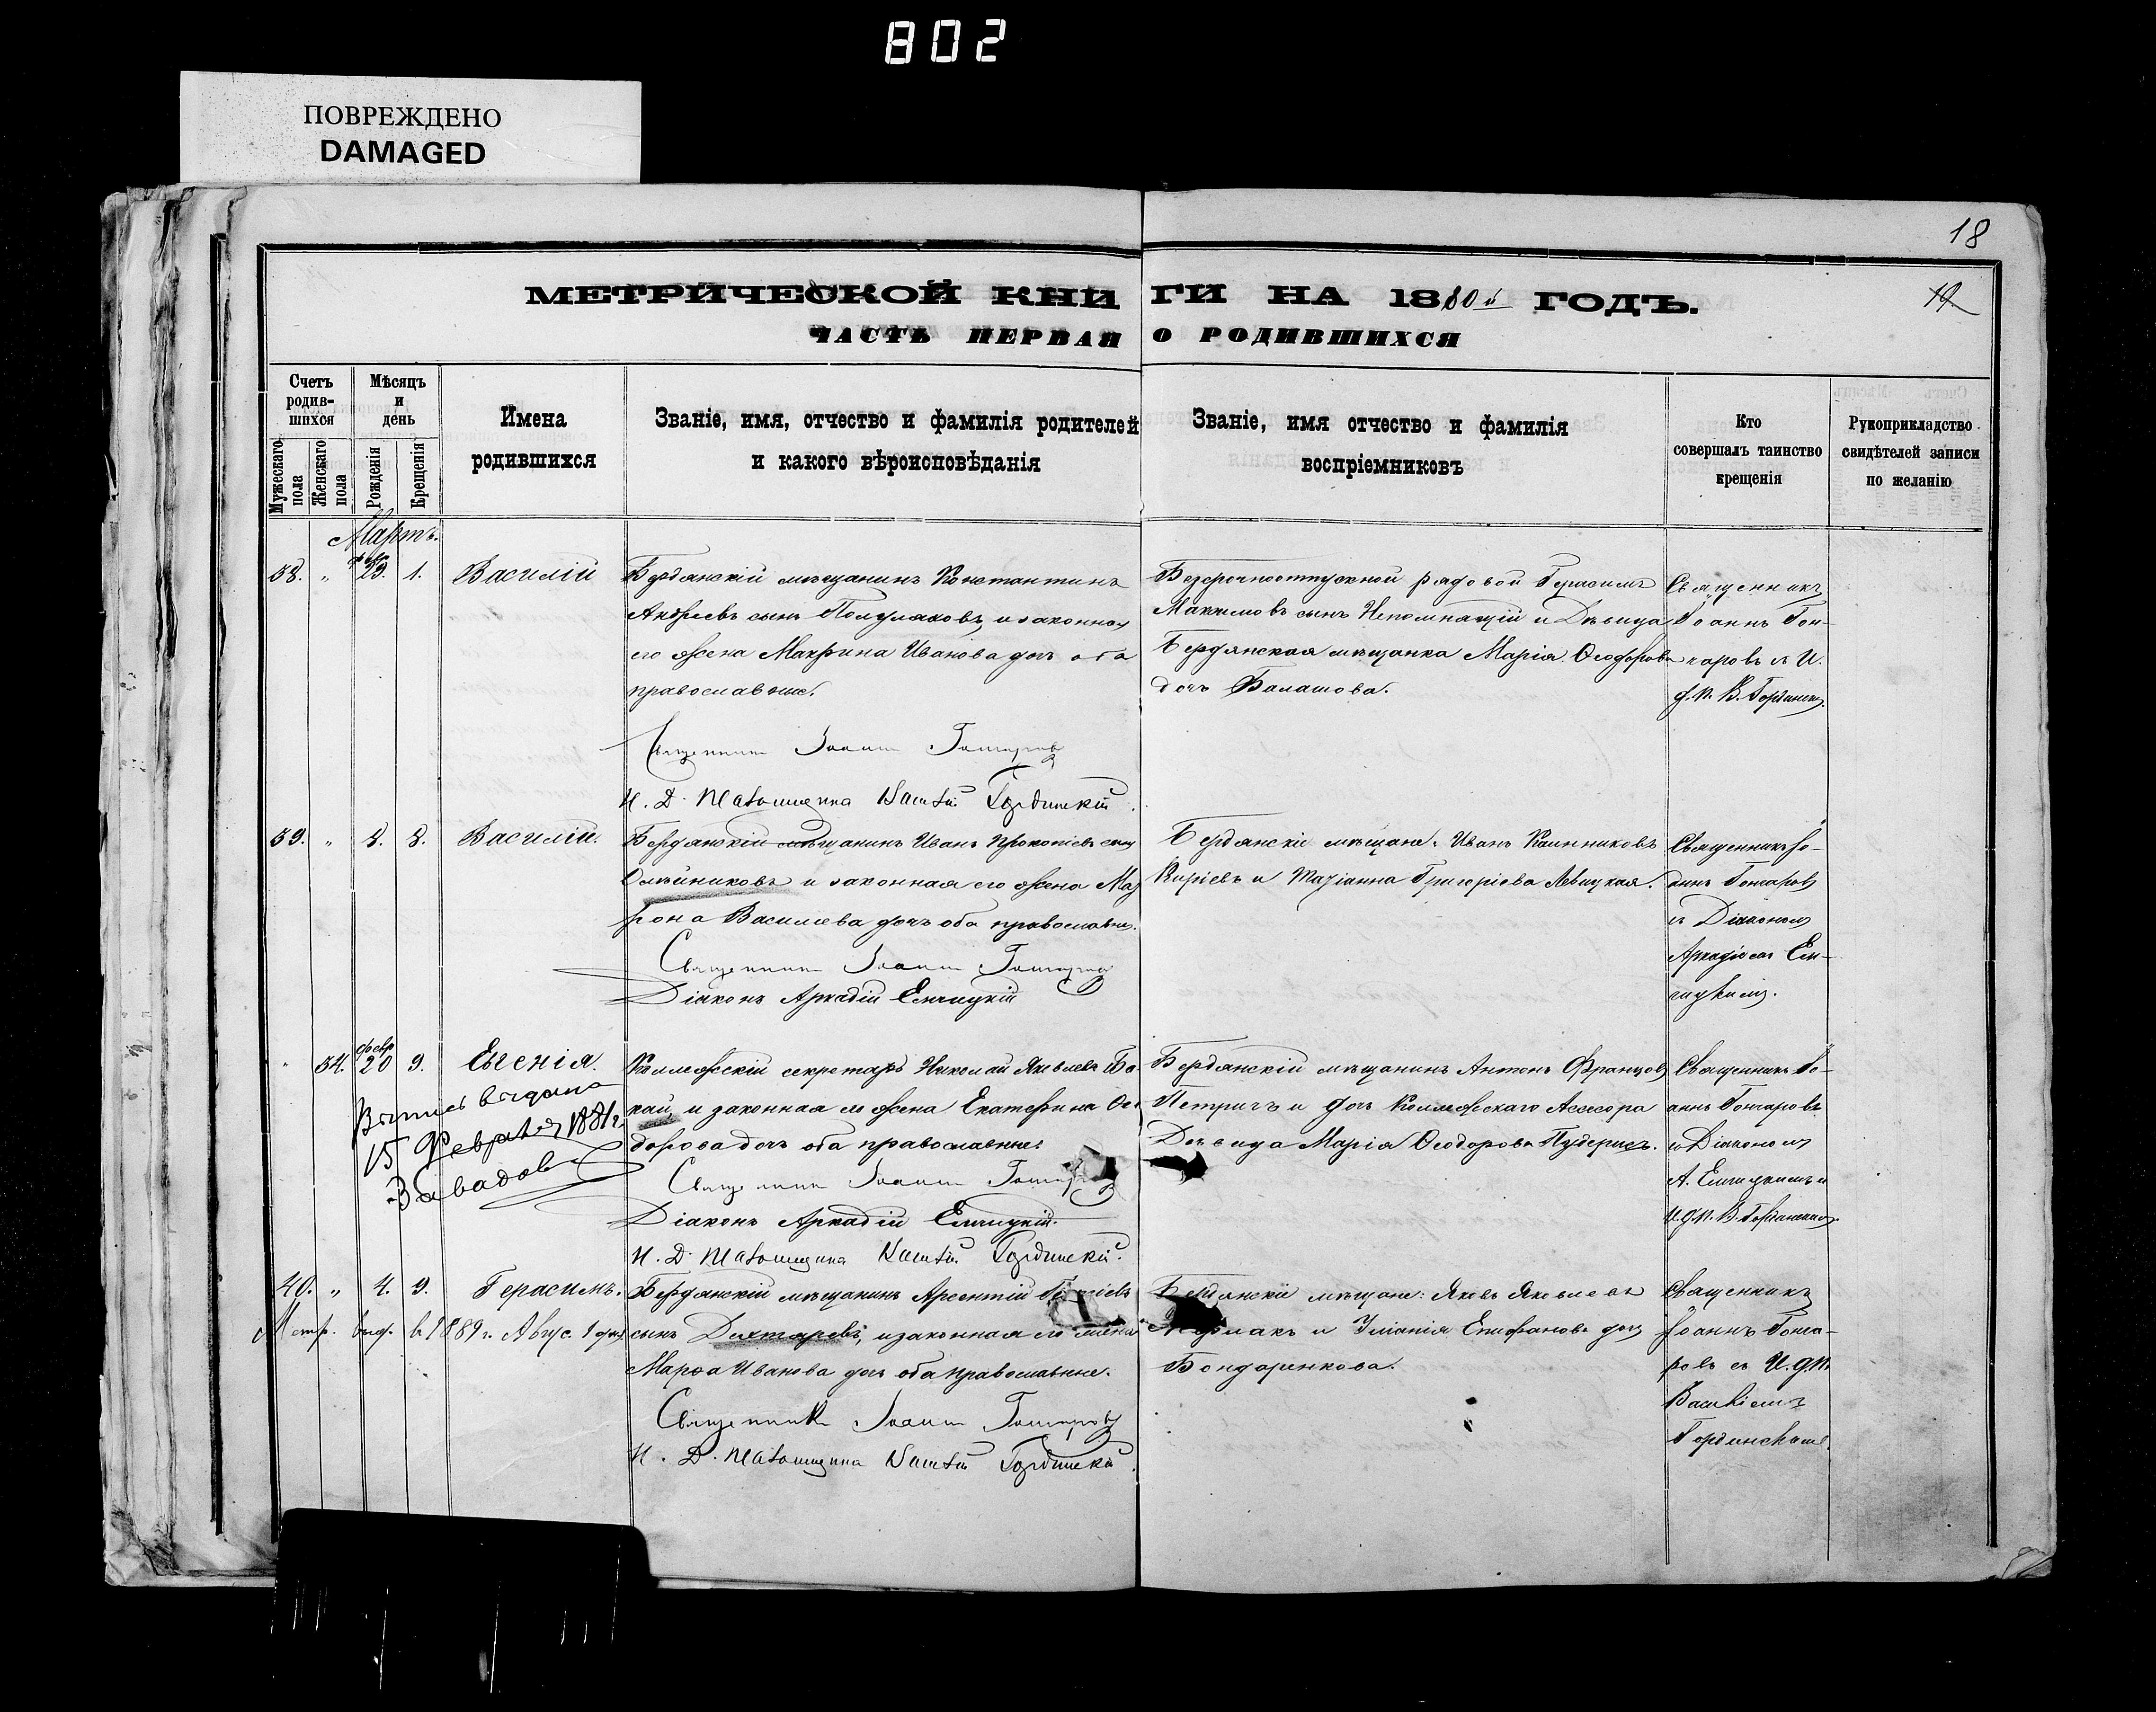 802
ПОВРЕЖДЕНО
DAMAGED
18
19
МЕТРИЧЕСКОЙ КНИГИ НА 1880й ГОДЪ.
ЧАСТЬ ПЕРВАЯ О РОДИВШИХСЯ
Счетъ родившихся
Мужескаго пола
Женскаго пола
Мѣсяцъ и день
Рожденія
Крещенія
Имена родившихся
Званіе, имя, отчество и фамилія родителей
и какого вѣроисповѣданія
Званіе, имя отчество и фамилія
воспріемниковъ
Кто
совершалъ таинство
крещенія
Рукоприкладство
свидѣтелей записи
по желанію
Мартъ.
38. „ февр 29. 1. Василій
Бердянскій мѣщанинъ Константинъ
Андреевъ сынъ и законная
его жена Макрина Иванова дочь оба
православные.
Священникъ Іоаннъ Гончаровъ
И. Д. Псаломщика Василій Гординскій.
Безсрочноотпускной рядовой Герасимъ
Максимовъ сынъ Непомнящій и Дѣвица
Бердянская мѣщанка Марія Ѳеодорова
дочь Балашова.
Священникъ
Іоаннъ Гон-
чаровъ съ И.
д. п. В. Гординским.
39. „ 8. 8. Василій.
Бердянскій мѣщанинъ Иванъ Прокопіевъ сынъ
Олѣйниковъ и законная его жена Мат
рона Василиева дочь оба православные.
Священникъ Іоаннъ Гончаровъ
Діаконъ Аркадій Елчицкій
Бердянскіе мѣщане: Иванъ
и Маріанна Григоріева Левицкая.
Священникъ Іо-
аннъ Гончаровъ
съ Діакономъ
Аркадіемъ Ел-
чицкимъ.
„ 34. февр 20 9. Евгенія.
Выпись выдана
15 Февраля 1881г.
Завадовъ
Коллежскій секретарь Николай Яковлевъ Ба
кай, и законная его жена Екатерина Ѳео
дорова дочь оба православные.
Священникъ Іоаннъ Гончаровъ
Діаконъ Аркадій Елчицкій.
И. Д. Псаломщика Василій Гординскій.
Бердянскій мѣщанинъ Антонъ Францовъ
Петричъ и дочь Коллежскаго Асессора
Дѣвица Марія Ѳеодорова
Священникъ Іо-
аннъ Гончаровъ
съ Діакономъ
А. Елчицкимъ и
И. д. п. В. Гординскимъ.
40. „ 4. 9. Герасимъ.
Метр. выд. в 1889 г. Авгус. 1 дня
Бердянскій мѣщанинъ Арсентій
сынъ Дехтаревъ, и законная его жена
Марѳа Иванова дочь оба православные.
Священникъ Іоаннъ Гончаровъ
И. Д. Псаломщика Василій Гординскій.
Бердянскіе мѣщане: Яковъ Яковлевъ
и Уліанія Епифанова дочь
Бондаренкова.
Священникъ
Іоаннъ Гонча-
ровъ съ И. д. п.
Василіемъ
Гординскимъ